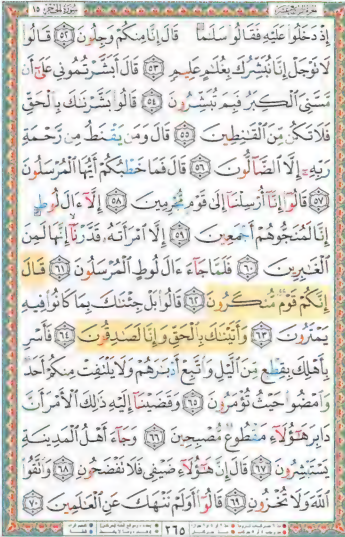 سورة الحجر ١٥
إِذْ دَخَلُوا۟ عَلَيْهِ فَقَالُوا۟ سَلَٰمًا قَالَ إِنَّا مِنكُمْ وَجِلُونَ ٥٢ قَالُوا۟
لَا تَوْجَلْ إِنَّا نُبَشِّرُكَ بِغُلَٰمٍ عَلِيمٍ ٥٣ قَالَ أَبَشَّرْتُمُونِى عَلَىٰٓ أَن
مَّسَّنِىَ ٱلْكِبَرُ فَبِمَ تُبَشِّرُونَ ٥٤ قَالُوا۟ بَشَّرْنَٰكَ بِٱلْحَقِّ
فَلَا تَكُن مِّنَ ٱلْقَٰنِطِينَ ٥٥ قَالَ وَمَن يَقْنَطُ مِن رَّحْمَةِ
رَبِّهِۦٓ إِلَّا ٱلضَّآلُّونَ ٥٦ قَالَ فَمَا خَطْبُكُمْ أَيُّهَا ٱلْمُرْسَلُونَ
٥٧ قَالُوٓا۟ إِنَّآ أُرْسِلْنَآ إِلَىٰ قَوْمٍ مُّجْرِمِينَ ٥٨ إِلَّآ ءَالَ لُوطٍ
إِنَّا لَمُنَجُّوهُمْ أَجْمَعِينَ ٥٩ إِلَّا ٱمْرَأَتَهُۥ قَدَّرْنَآ إِنَّهَا لَمِنَ
ٱلْغَٰبِرِينَ ٦٠ فَلَمَّا جَآءَ ءَالَ لُوطٍ ٱلْمُرْسَلُونَ ٦١ قَالَ
إِنَّكُمْ قَوْمٌ مُّنكَرُونَ ٦٢ قَالُوا۟ بَلْ جِئْنَٰكَ بِمَا كَانُوا۟ فِيهِ
يَمْتَرُونَ ٦٣ وَأَتَيْنَٰكَ بِٱلْحَقِّ وَإِنَّا لَصَٰدِقُونَ ٦٤ فَأَسْرِ
بِأَهْلِكَ بِقِطْعٍ مِّنَ ٱلَّيْلِ وَٱتَّبِعْ أَدْبَٰرَهُمْ وَلَا يَلْتَفِتْ مِنكُمْ أَحَدٌ
وَٱمْضُوا۟ حَيْثُ تُؤْمَرُونَ ٦٥ وَقَضَيْنَآ إِلَيْهِ ذَٰلِكَ ٱلْأَمْرَ أَنَّ
دَابِرَ هَٰٓؤُلَآءِ مَقْطُوعٌ مُّصْبِحِينَ ٦٦ وَجَآءَ أَهْلُ ٱلْمَدِينَةِ
يَسْتَبْشِرُونَ ٦٧ قَالَ إِنَّ هَٰٓؤُلَآءِ ضَيْفِى فَلَا تَفْضَحُونِ ٦٨ وَٱتَّقُوا۟
ٱللَّهَ وَلَا تُخْزُونِ ٦٩ قَالُوٓا۟ أَوَلَمْ نَنْهَكَ عَنِ ٱلْعَٰلَمِينَ ٧٠
٢٦٥